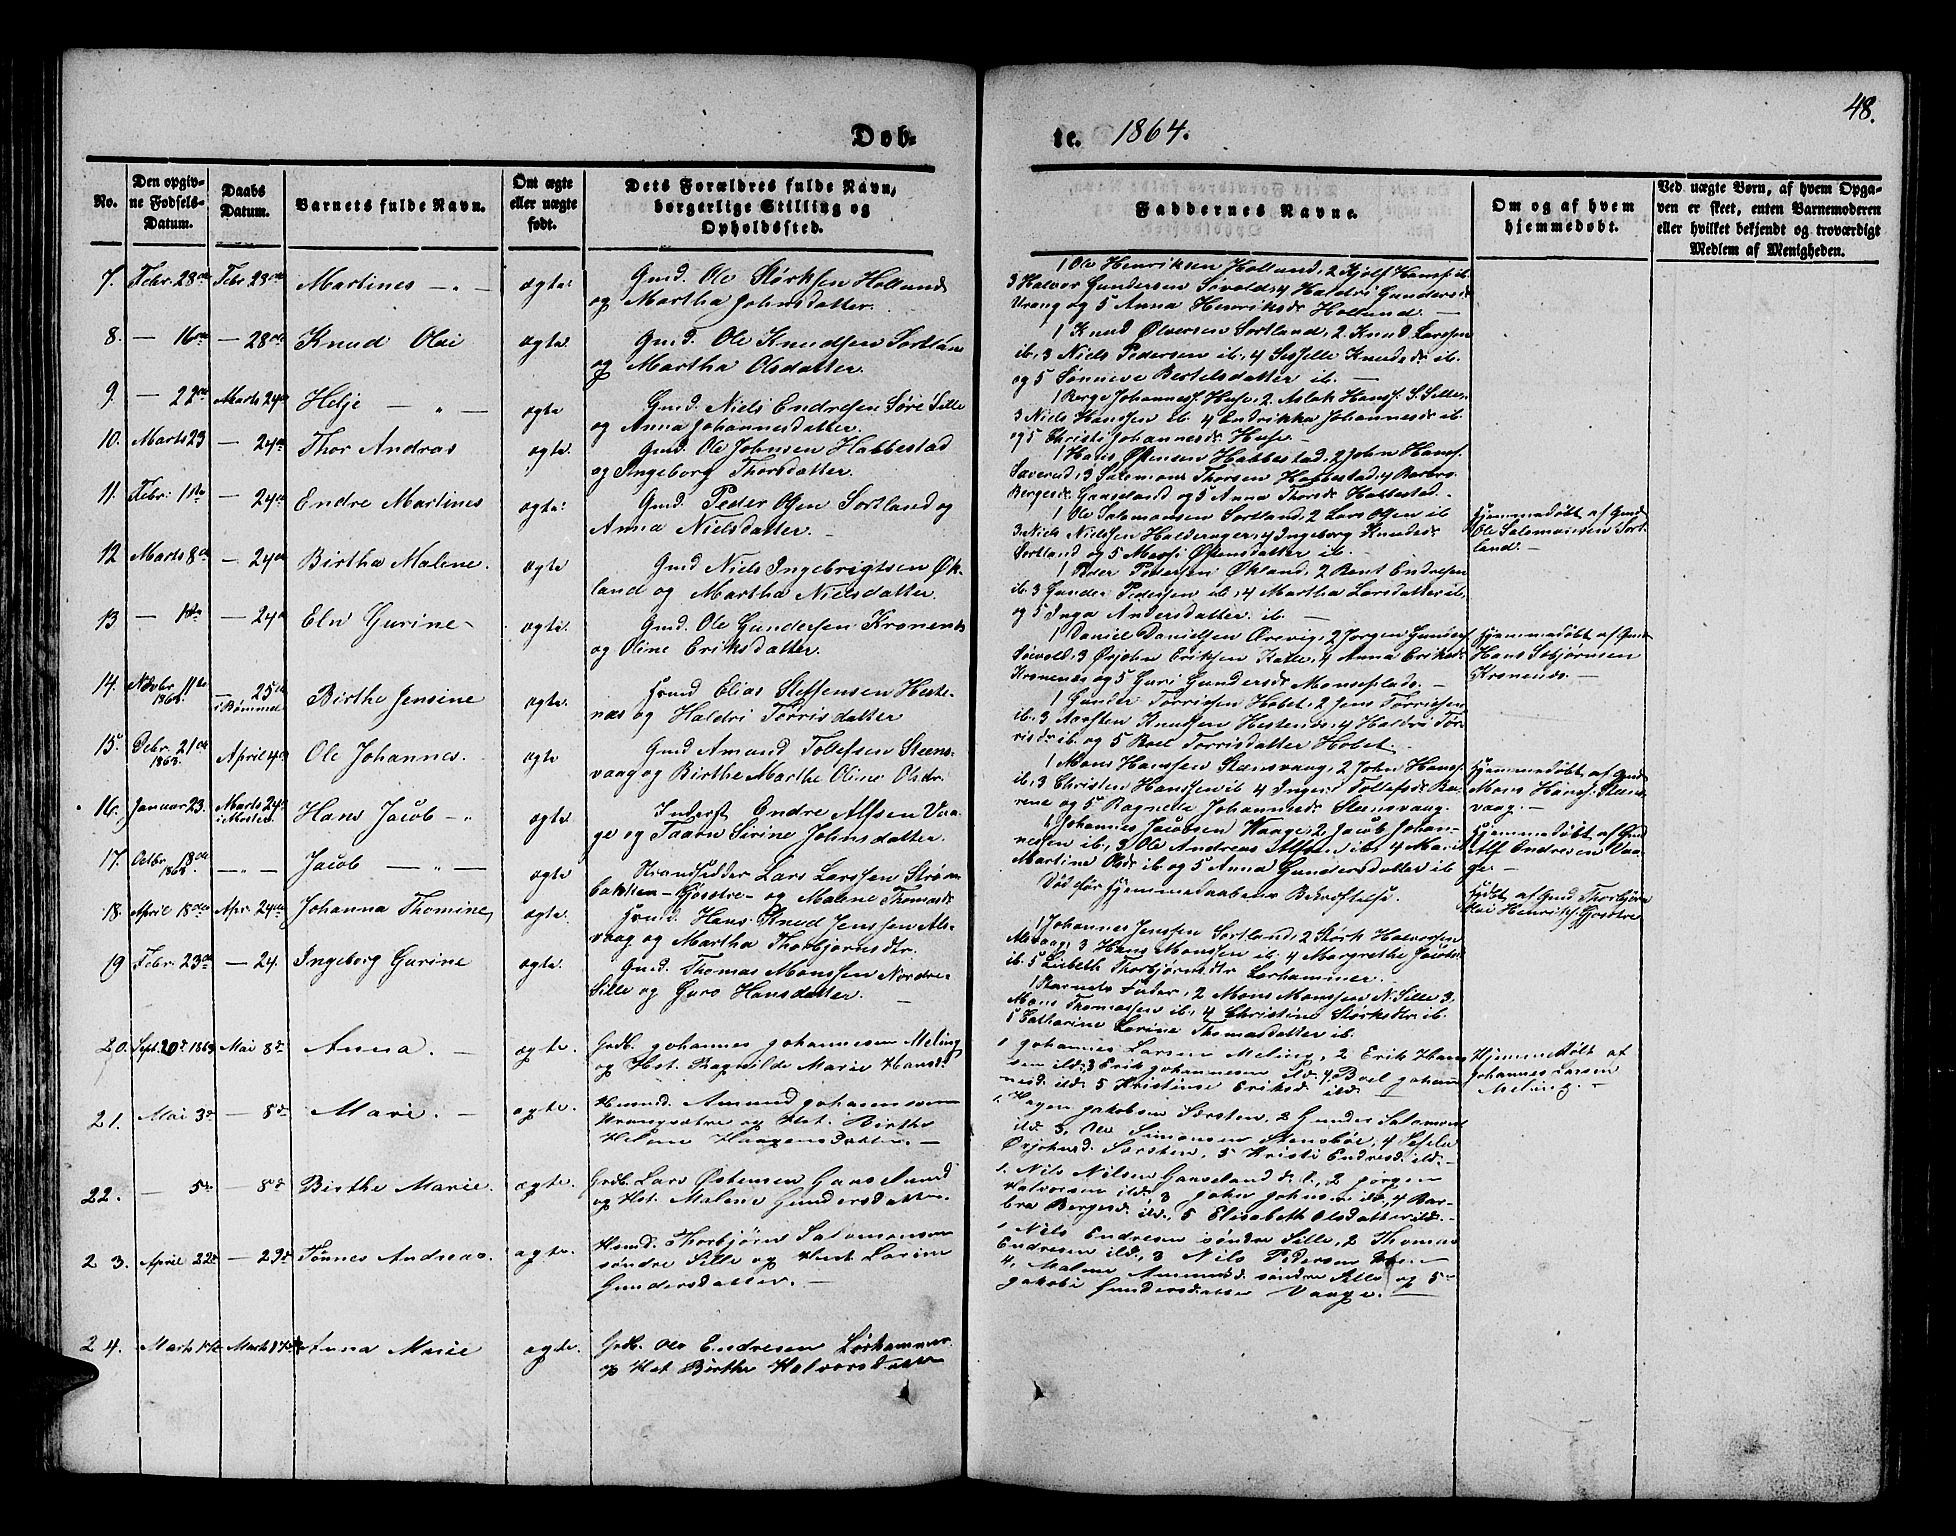 48.
Døb-
te. 1864.
No.
Den opgiv-
ne Fødsels-
Datum.
Daabs
Datum.
Barnets fulde Navn.
Om ægte
eller uægte
født.
Dets Forældres fulde Navn,
borgerlige Stilling og
Opholdssted.
Faddernes Navne.
Om og af hvem
hjemmedøbt.
Ved uægte Børn, af hvem Opga-
ven er skeet, enten Barnemoderen
eller hvilket bekjendt og troværdigt
Medlem af Menigheden.
7. Febr. 28de Febr 28de Martines — „ — ægte:
Gmd. Ole Størksen Holland
og Martha Johnsdatter.
1 Ole Henriksen Holland, 2 Kjol Hansf. ib.
3 Halvor Gundersen Søvold, 4 Haldri Gundersdr
Vrang og 5 Anna Henriksdr Holland. —
8. — 16de — 28de Knud Olai ægte.
Gmd. Ole Knudsen Sortland
og Martha Olsdatter.
1 Knud Ølversen Sortland, 2 Knud Larssen
ib, 3 Niels Pedersen ib, 4 Sissille Knudsdr ib.
og 5 Sønneve Bertelsdatter ib. —
9. — 22de Marts 24de Helje — „ — ægte
Gmd. Niels Endresen Søre Sille
og Anna Johannesdatter.
1 Børge Johannesf. Huse, 2. Aslak Hansf. S. Sille,
3 Niels Hanssen ib 4 Endrikka Johannesdr ib.
og 5 Christi Johannesdr Huse —
10. Marts 23 — 24de Thor Andras ægte.
Gmd. Ole Johnsen Habbestad
og Ingeborg Thorsdatter.
1 Hans Østensen Habbestad, 2 John Hansf.
Saverud, 3 Salamons Thorsen Habbestad, 4 Barbro
Bergesdr. Gaaseland og 5 Anna Thorsdr Habbestad. —
11. Febr. 11te — 24de Endre Martines ægte:
Gmd. Peder Olsen Sortland og
Anna Nielsdatter. —
1 Ole Salamonsen Sortland, 2 Lars Olsen ib
3. Niels Nielssen Halderager, 4 Ingeborg Knudsdr
Sortland og 5 Massi Østensdatter ib. —
Hjemmedøbt af Gmd.
Ole Salamonsen Sort-
land. —
12 Marts 8de — 24de Birtha Malene. ægte
Gmd Niels Ingebrigtsen Øk-
land og Martha Nielsdatter.
1 Peder Pedersen Økland, 2 Bent Endresen
ib. 3 Gunder Pedersen ib, 4 Martha Larsdatter ib
og 5 Inga Andersdatter. ib. —
13 — — 24de Eln Gurine — ægte.
Gmd. Ole Gundersen Kronenes
og Oline Eriksdatter.
1 Daniel Danielsen Ørevig, 2 Jørgen Gunders
Søvold, 3 Ørjohn Eriksen Katle, 4 Anna Eriksdr
Kronenes og 5 Guri Gundersdr Monseplads. —
Hjemmedøbt af Gmd.
Hans Asbjørnsen
Kronenes. —
14. Novbr 11te 1863. — 25de i Bømmel Birthe Jensine ægte.
Husmd Elias Steffensen Heste-
næs og Haldri Tørrisdatter
1 Gunder Tørrissen Hobet, 2 Jens Tørrissen
ib. 3 Aarsten Knudsen Hestenæs, 4 Haldri Tør-
risdr ib. og 5 Boel Torrisdatter Hobet.
15. Debr. 21de 1863. April 4de Ole Johannes. ægte
Gmd Amund Tollefsen Steens-
vaag og Birthe Marthe Oline Olsdr.
1 Mons Hanssen Steensvaag, 2 John Hansf.
ib, 3 Christen Hanssen ib 4 Inger Tollefsdr Ba-
rene og 5 Ragnela Johannesdr Steensvaag.
Hjemmedøbt af Gmd.
Mons Hansf. Steens-
vaag. —
16. Januar 23. Marts 24de i Mosters. Hans Jacob — „ ægte
Inderst Endre Alfsen Vaa-
ge og Taaon Serine Johnsdatter.
1 Johannes Jacobsen Waage, 2 Jacob Johan-
nesen ib, 3 Ole Andreas Alfsen ib, 4 Marit
Martine Olsdr ib og 5 Anna Gundersdatter ib
Hjemmedøbt af Gmd
Alf Endresen Vaa-
ge. —
17. Octbr. 18de 1863. — „ — Jacob — „ — ægte.
Strandsidder Lars Larssen Strøm
bakken — Gjøsætre — og Malene Thomasdr
Død før Hjemmedaabens Bekræftelse.
Hjdøbt af Gmd Thorbjørn
Olai Henrichs. Gjøsætre
18. April 18de Apr. 24de Johanna Thomine ægte.
Husmd. Hans Knud Jenssen Als-
vaag og Martha Thorbjørnsdtr.
1 Johannes Jenssen Sortland, 2 Størk Halvorsen
Alsvaag, 3 Hans Monssen ib. 4 Margrethe Jacobsd
ib. 5 Lisbeth Thorbjørnsdtr Lørhammer.
19 Febr. 23de — 24. Ingeborg Gurine ægte.
Gmd. Thomas Monssen Nordre-
Sille og Guro Hansdatter. —
1 Barnets Fader, 2 Mons Monssen N. Sille 3.
Mons Thomassen ib, 4 Christine Størksdtr ib.
5 Catharine Larine Thomasdatter ib.
20. Sept. 20d 1863 Mai 8de Anna. — ægte.
Grdb. Johannes Johannesen Meling
og Hst. Ragnilde Marie Hansd.
1 Johannes Larsen Meling, 2 Erik Han
sen ild, 3 Erik Johannesen ild. 4, Boel Johan
nesd. ild. 5 Kristense Eriksd. ild. —
Hjemmedøbt af
Johannes Larsen
Meling. —
21. Mai 3d — 8de Mari. — ægte.
Husmd. Amund Johannessen
Vrangsætre og Hst. Birthe
Helene Haagensdatter. —
1. Hagen Jakobsen Særsten, 2 Gunder Salomons
ild. 3, Ole Simonsen Stensbøe, 4 Sesela
Ørjohnsd. Særsten, 5 Kristi Endresd. ild. —
22. — 5te — 8d Birthe Marie. ægte.
Grdb. Lars Østensen Gaaseland
og Hst. Malene Gundersdatter.
1. Nils Nilsen Gaaseland d. e., 2 Jørgen
Halvorsen ild, 3 John Johnsen ild, 4 Bar-
bra Bergesd. ild, 5 Elisabeth Olsdatter ild. —
23. April 22d — 29d Tønnes Andreas. ægte.
Husmd. Thorbjörn Salomonsen
søndre Sille og Hust Larine
Gundersdatter. —
1, Nils Endresen søndre Sille, 2 Thomas
Endresen ild, 3 Nils Pedersen —
4, Malene Amundsd. søndre Sille og 5
Jakobe Gundersdatter Vaage. —
24. Marts 17d Marts 17d Anna Marie ægte.
Grdb. Ole Endresen Lørhammer
og Hst Birthe Halvorsdatter